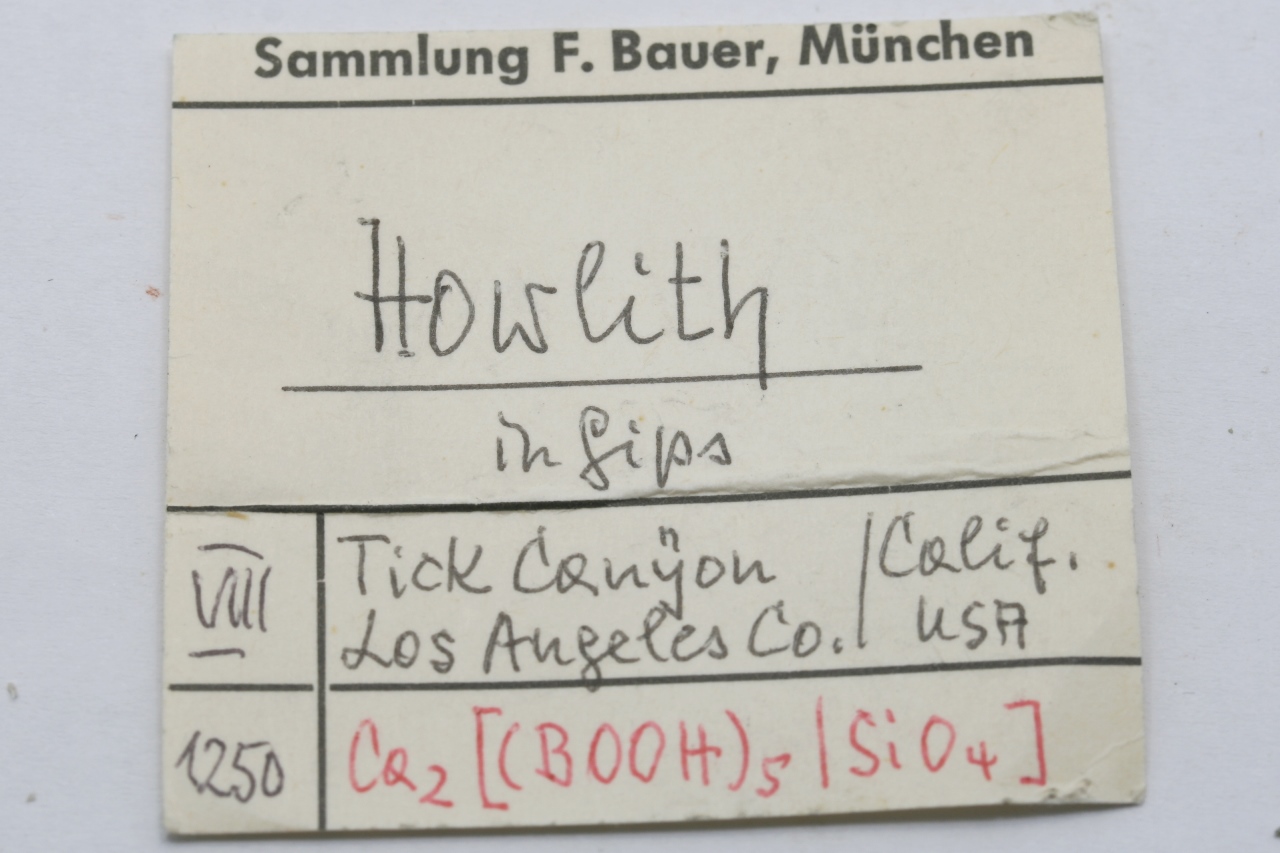 Sammlung F. Bauer, München
Howlith
in Gips
VIII
Tick Canÿon / Calif.
Los Angeles Co. / USA
1250
Ca2 [(BOOH)5 | SiO4]